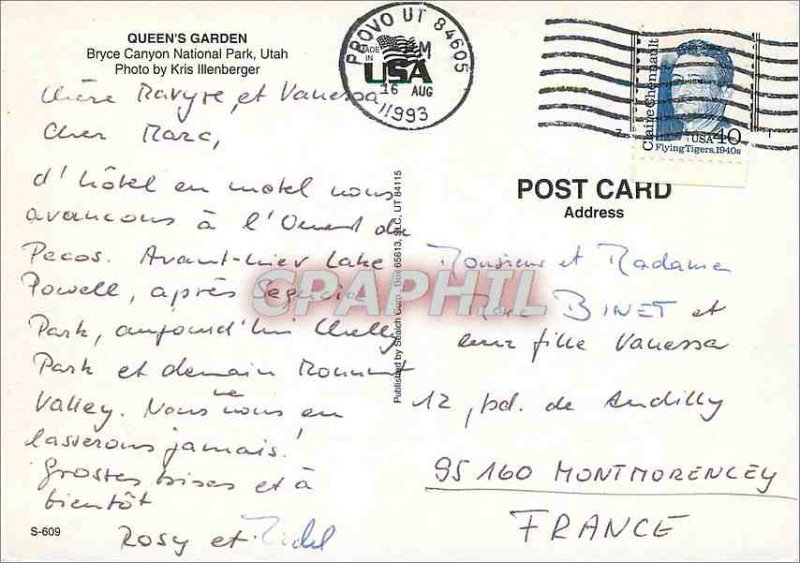 QUEEN'S GARDEN
Bryce Canyon National Park, Utah
Photo by Kris Illenberger
PROVO UT 84605
PM
MADE IN USA
16 AUG
1993
Claire Chennault
USA 40
Flying Tigers, 1940s
Chère et Vanessa,
Cher Marc,
d'hôtel en motel nous
avancons à l'Ouest du
Pecos. Avant-hier Lake
Powell, après Sequoia
Park, aujourd'hui Chelly
Park et demain Monument
Valley. Nous ne nous en
lasserons jamais!
Grosses bises et à
bientôt
Rosy et
S-609
Published by Sealch Corp. Box 65613, SLC, UT 84115
CPAPHIL
POST CARD
Address
Monsieur et Madame
Marc BINET et
leur fille Vanessa
12, bd. de Andilly
95160 MONTMORENCEY
FRANCE